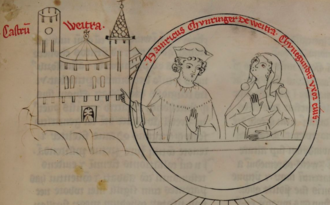 Castrū Weitra.
Hainricus Chvnringer de Weitra. Chvnegundis vxor eius.